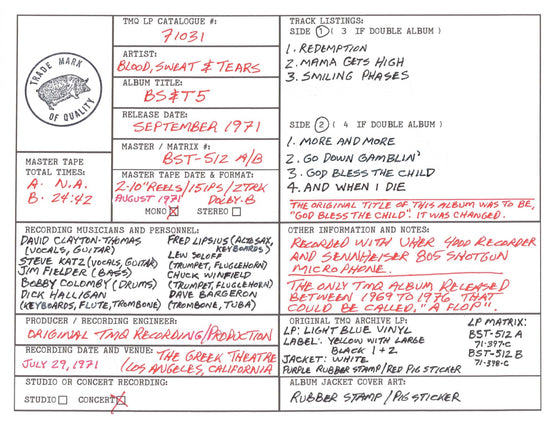 TRADE MARK
OF QUALITY
MASTER TAPE
TOTAL TIMES:
A. N.A.
B. 24:42
TMQ LP CATALOGUE #:
71031
ARTIST:
BLOOD, SWEAT & TEARS
ALBUM TITLE:
BS&T5
RELEASE DATE:
SEPTEMBER 1971
MASTER / MATRIX #:
BST-512 A/B
MASTER TAPE DATE & FORMAT:
2-10" REELS/15IPS/2TRK
AUGUST 1971 DOLBY-B
MONO STEREO
TRACK LISTINGS:
SIDE 1 ( 3 IF DOUBLE ALBUM )
1. REDEMPTION
2. MAMA GETS HIGH
3. SMILING PHASES
SIDE 2 ( 4 IF DOUBLE ALBUM )
1. MORE AND MORE
2. GO DOWN GAMBLIN'
3. GOD BLESS THE CHILD
4. AND WHEN I DIE
THE ORIGINAL TITLE OF THIS ALBUM WAS TO BE,
"GOD BLESS THE CHILD". IT WAS CHANGED.
RECORDING MUSICIANS AND PERSONNEL:
DAVID CLAYTON-THOMAS
(VOCALS, GUITAR)
STEVE KATZ (VOCALS, GUITAR)
JIM FIELDER (BASS)
BOBBY COLOMBY (DRUMS)
DICK HALLIGAN
(KEYBOARDS, FLUTE, TROMBONE)
FRED LIPSIUS (ALTO SAX,
KEYBOARDS)
LEW SOLOFF
(TRUMPET, FLUGLEHORN)
CHUCK WINFIELD
(TRUMPET, FLUGLEHORN)
DAVE BARGERON
(TROMBONE, TUBA)
OTHER INFORMATION AND NOTES:
RECORDED WITH UHER 4000 RECORDER
AND SENNHEISER 805 SHOTGUN
MICROPHONE.
THE ONLY TMQ ALBUM RELEASED
BETWEEN 1969 TO 1976 THAT
COULD BE CALLED, "A FLOP".
PRODUCER / RECORDING ENGINEER:
ORIGINAL TMQ RECORDING/PRODUCTION
RECORDING DATE AND VENUE:
JULY 29, 1971
THE GREEK THEATRE
(LOS ANGELES, CALIFORNIA
STUDIO OR CONCERT RECORDING:
STUDIO CONCERT
ORIGINAL TMQ ARCHIVE LP:
LP: LIGHT BLUE VINYL
LABEL: YELLOW WITH LARGE
BLACK 1 + 2
JACKET: WHITE
PURPLE RUBBER STAMP/RED PIG STICKER
LP MATRIX:
BST-512 A
71-397-C
BST-512 B
71-398-C
ALBUM JACKET COVER ART:
RUBBER STAMP/PIG STICKER